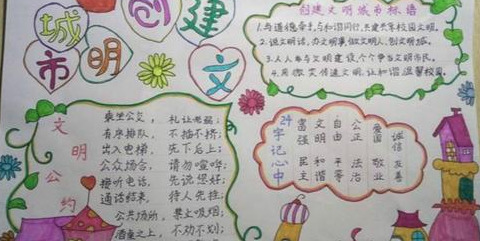 创建
文
明
城市
创建文明城市标语
1.与道德牵手,与和谐同行,共建共享校园文明。
2.说文明话,办文明事,做文明人,创文明城。
3.人人参与文明建设,个个争当文明市民。
4.用微笑传递文明,让和谐温馨校园。
文明公约
乘坐公交, 礼让老弱;
有序排队, 不插不挤;
出入电梯, 先下后上;
公众场合, 请勿喧哗;
接听电话, 先说您好;
通话结束, 待人先挂;
公共场所, 禁止吸烟;
酒桌之上, 不劝不刻;
24字记心中
富强 民主
文明 和谐
自由 平等
公正 法治
爱国 敬业
诚信 友善